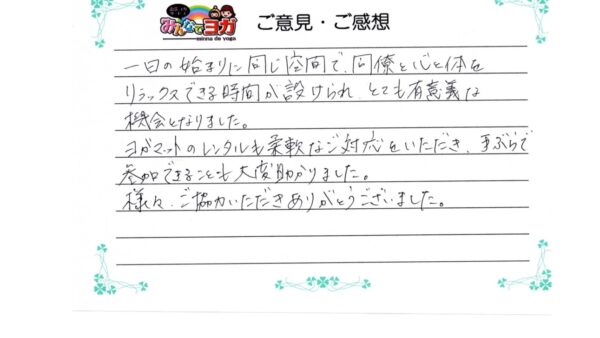 みんなでヨガ
minna de yoga
ご意見・ご感想
一日の始まりに同じ空間で、同僚と心と体を
リラックスできる時間が設けられ、とても有意義な
機会となりました。
ヨガマットのレンタルも柔軟なご対応をいただき、手ぶらで
参加できることも大変助かりました。
様々、ご協力いただきありがとうございました。